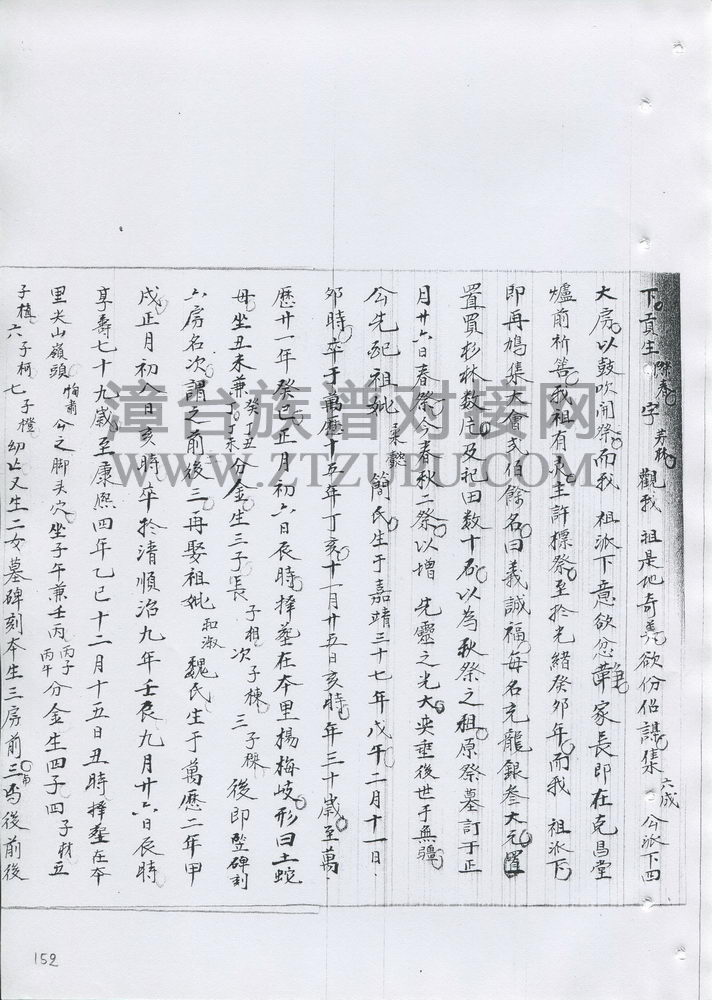 下貢生 際春 字 芳林 觀我 祖是地奇美欲份侶謀集 六成 公派下四
大房以鼓吹鬧祭而我 祖派下意欲忿爭 家長即在克昌堂
爐前祈筶我祖有灵主許標祭至於光緒癸卯年而我 祖派下
即再鳩集大會弍伯餘名曰義誠福每名充龍銀叁大元置
置買杉林数庄及祀田数十石以為秋祭之租原祭墓訂于正
月廿六日春祭今春秋二祭以增 先靈之光大央垂後世于無疆
公先配祖妣 柔懿 簡氏生于嘉靖三十七年戊午二月十一日
卯時卒于萬歷十五年丁亥十一月廿五日亥時年三十歲至萬
歷廿一年癸巳正月初六日辰時擇塟在本里楊梅岐形曰土蛇
毋坐丑未兼 癸丁丑丁未 分金生三子長 子相 次 子棟 三 子櫟 後即竪碑刻
六房名次謂之前後三再娶祖妣 和淑 魏氏生于萬歷二年甲
戌正月初八日亥時卒於清順治九年壬辰九月廿六日辰時
享壽七十九歲至康熙四年乙巳十二月十五日丑時擇塟在本
里尖山嶺頭 公之脚头穴坐子午兼壬丙 丙子丙午 分金生四子四子材五
子植六子柯七子橙 幼亡又生二女墓碑刻本生三房前三為後前後
152
漳台族谱对接网
WWW.ZTZUPU.COM